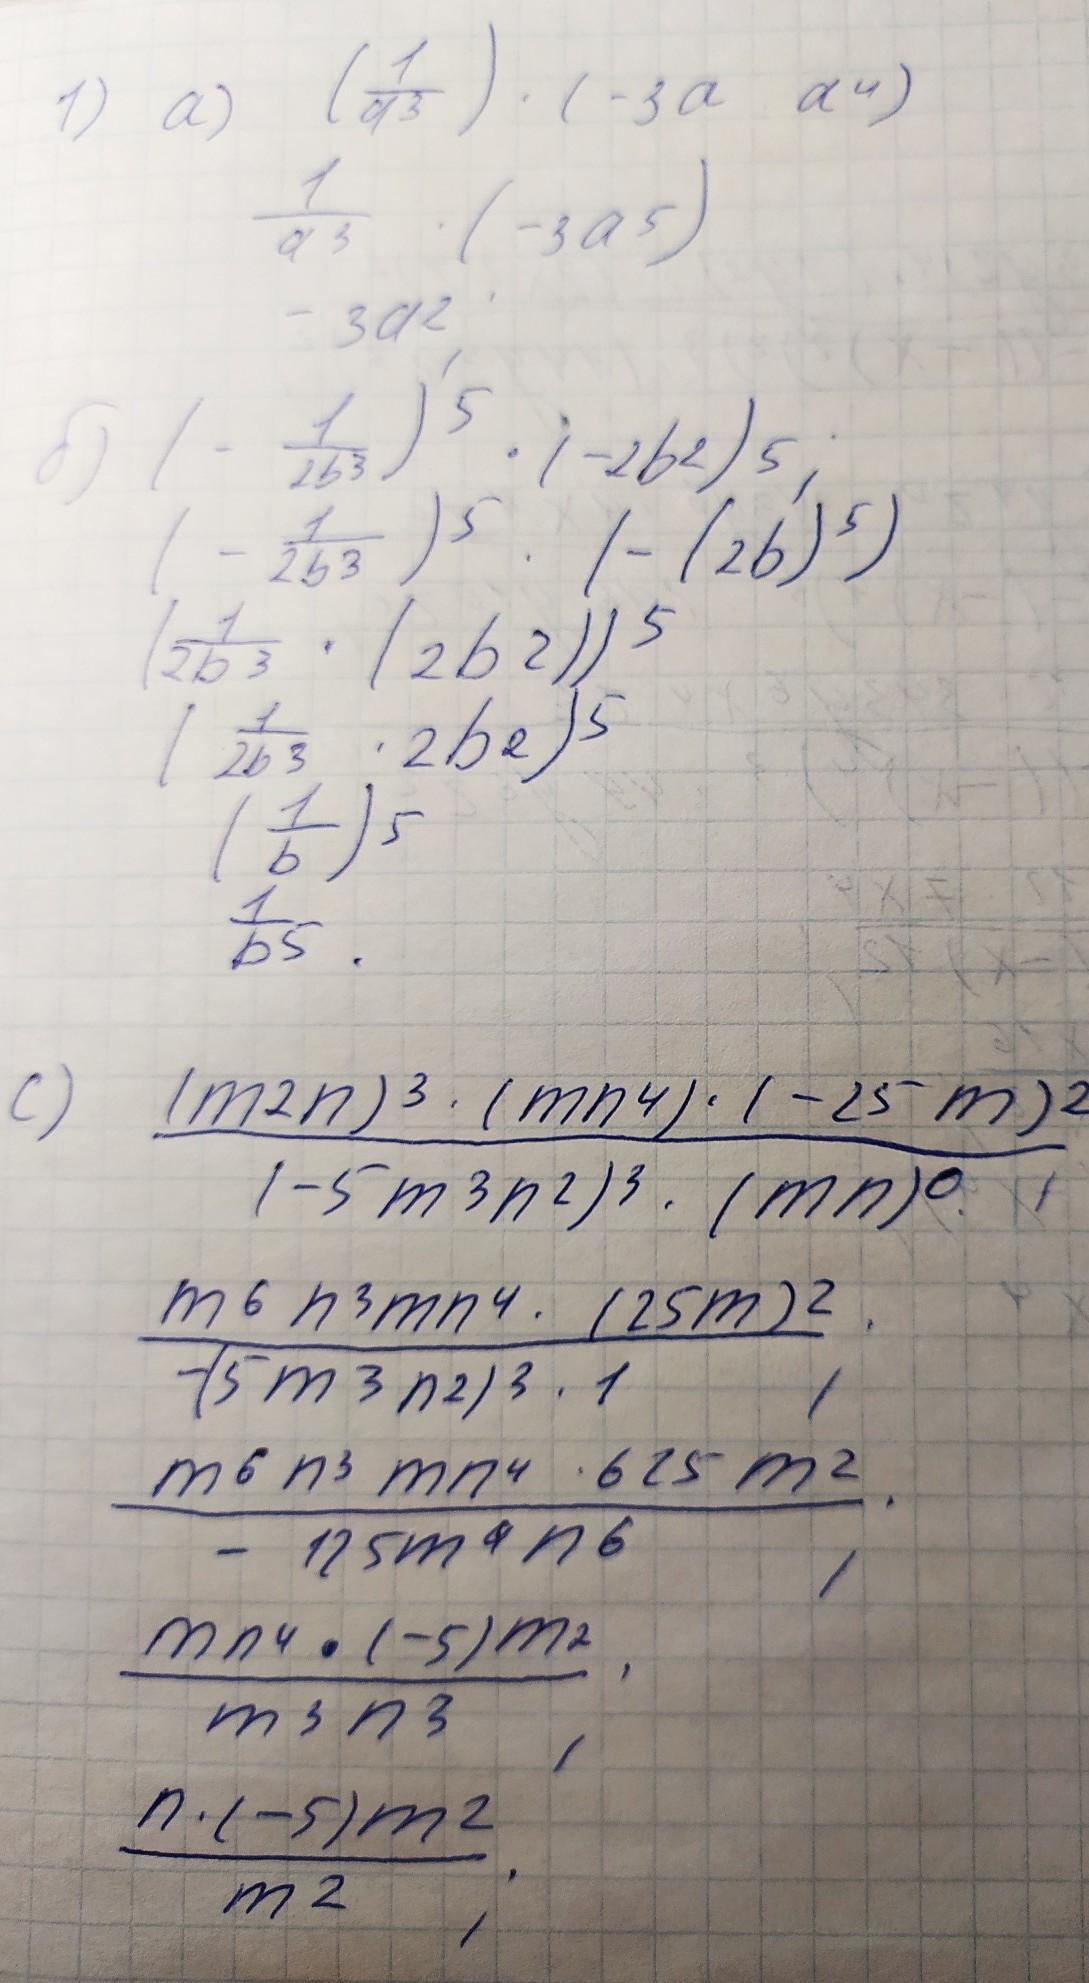 1) а) (1/a3) · (-3a a4)
1/a3 · (-3a5)
-3a2;
б) (- 1/2b3)5 · (-2b2)5;
(- 1/2b3)5 · (-(2b)5)
(1/2b3 · (2b2))5
(1/2b3 · 2b2)5
(1/b)5
1/b5.
c) (m2n)3 · (mn4) · (-25m)2 / (-5m3n2)3 · (mn)0;
m6 n3mn4 · (25m)2 / -(5m3n2)3 · 1;
m6 n3 mn4 · 625m2 / - 125m9n6;
mn4 · (-5)m2 / m3n3;
n·(-5)m2 / m2;